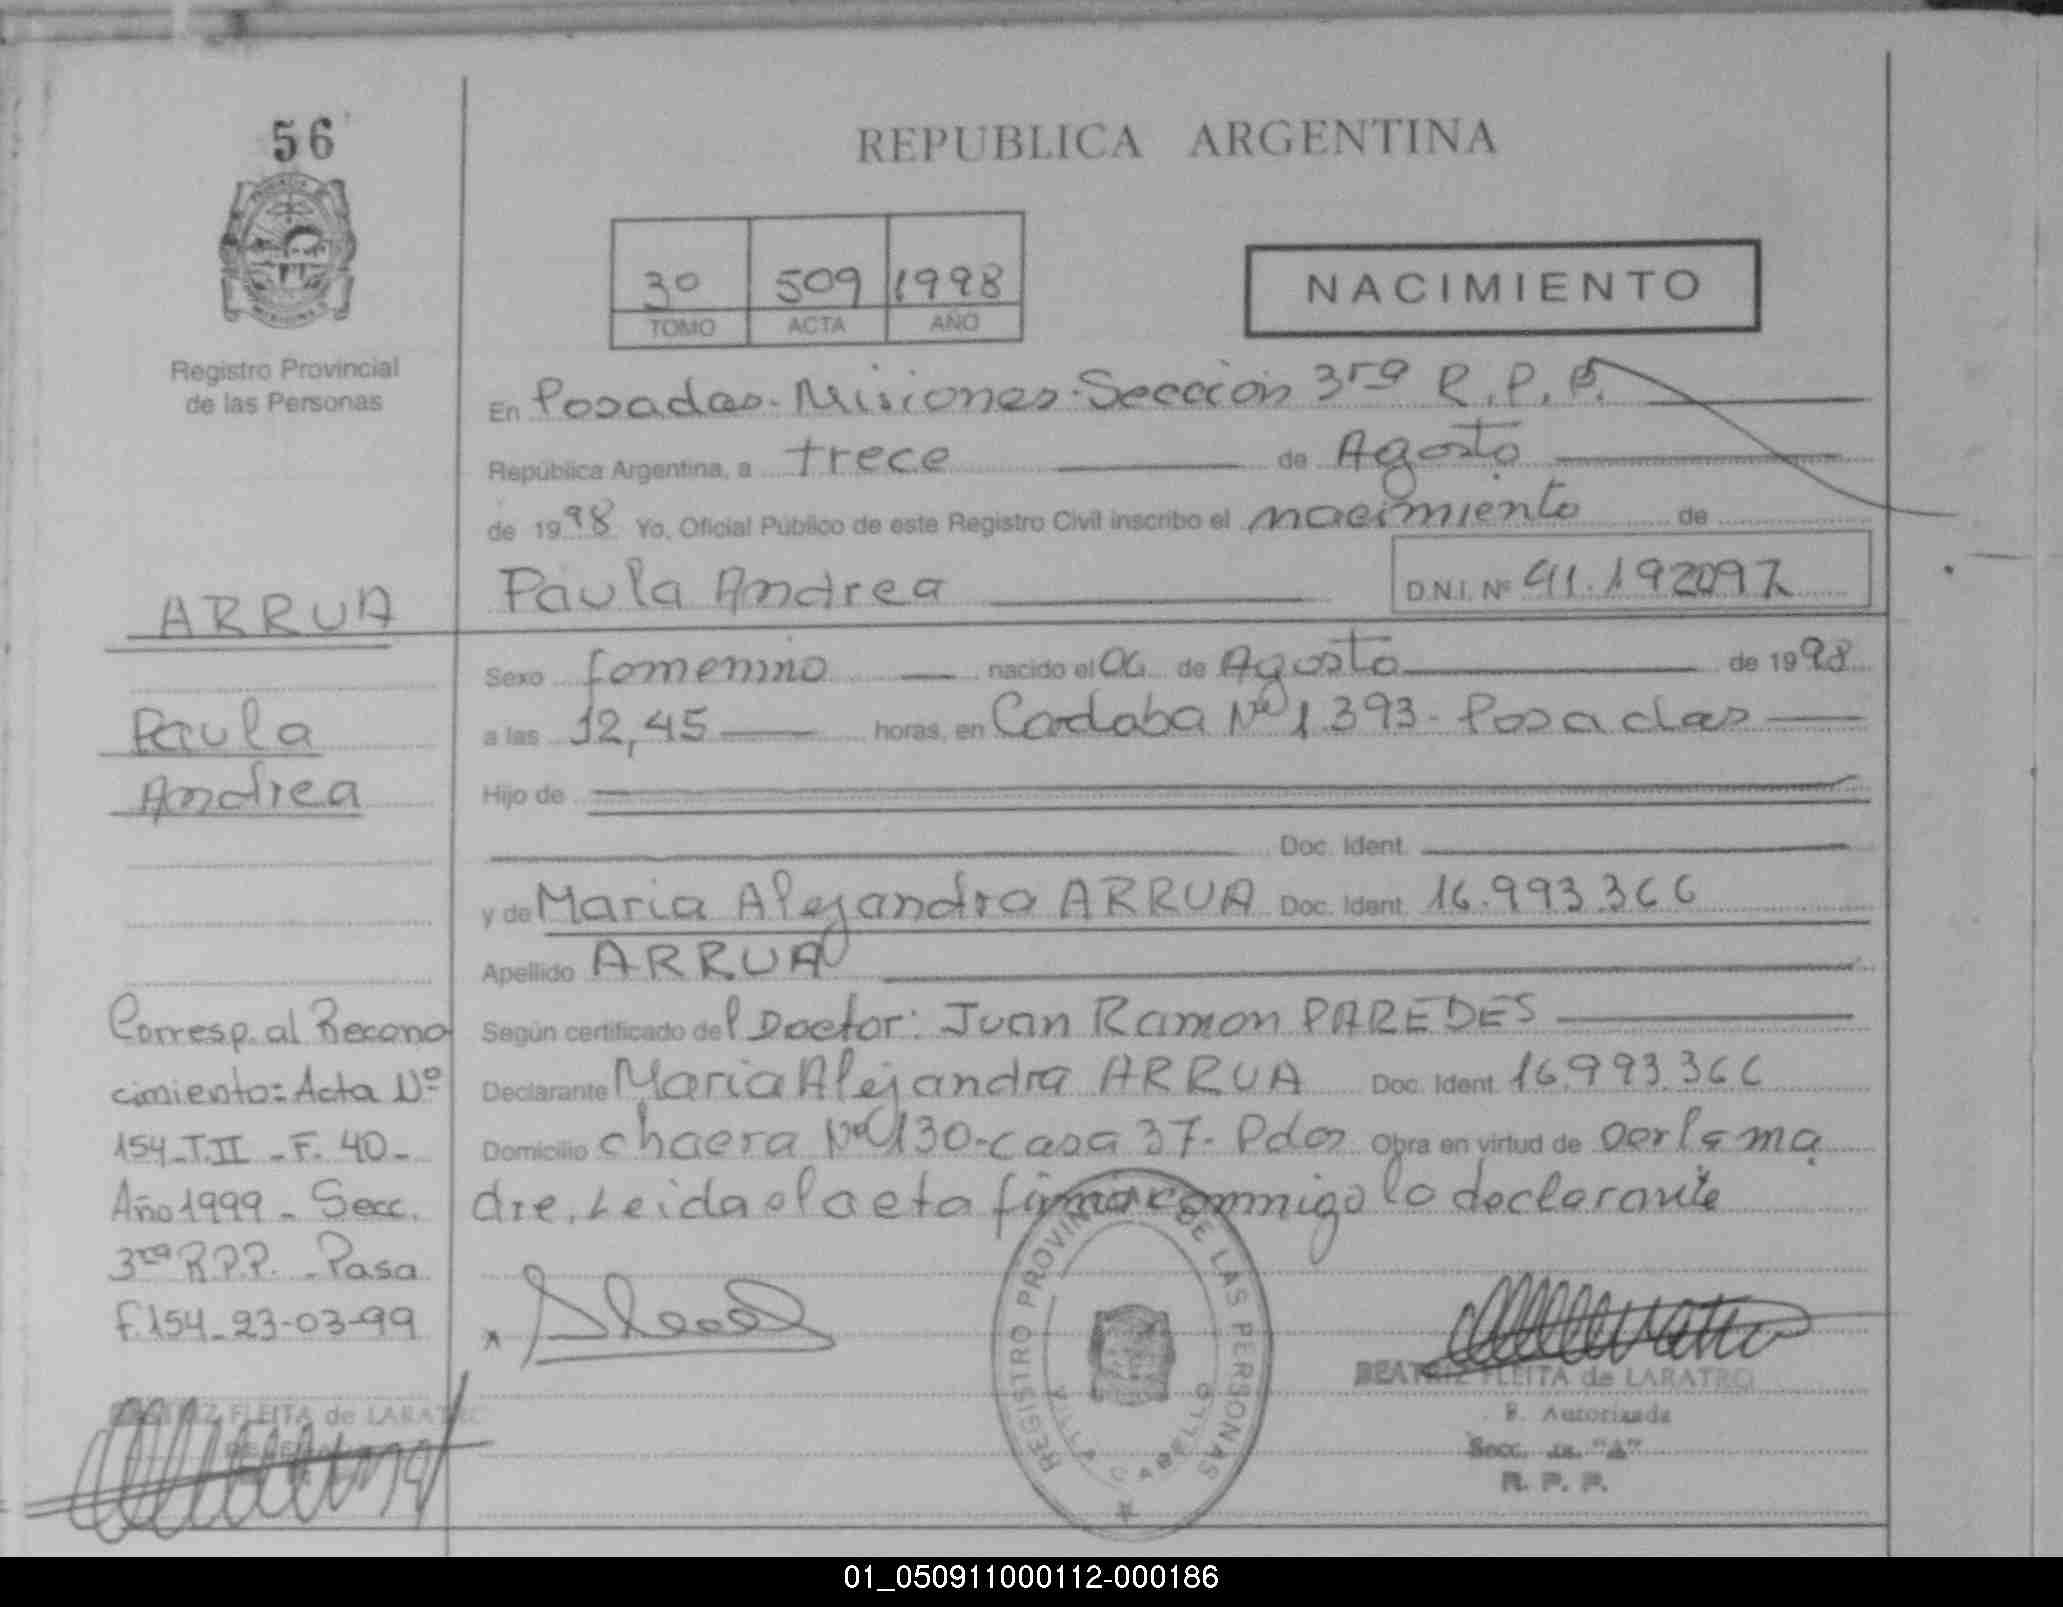 56
REPUBLICA ARGENTINA
30 509 1998
TOMO ACTA AÑO
NACIMIENTO
Registro Provincial
de las Personas
En Posadas-Misiones-Sección 3ra R.P.P.
República Argentina, a trece de Agosto
de 1998 Yo, Oficial Público de este Registro Civil inscribo el nacimiento de
Paula Andrea D.N.I. Nº 41.192097
ARRUA
Sexo femenino nacido el 06 de Agosto de 1998
Paula
a las 12,45 horas, en Cordoba Nº 1.393- Posadas
Andrea
Hijo de
Doc. Ident.
y de Maria Alejandra ARRUA Doc. Ident. 16.993.366
Apellido ARRUA
Corresp. al Recono
cimiento: Acta Nº
154-T.II - F. 40-
Año 1999 - Secc.
3ra R.P.P. - Pasa
F.154-23-03-99
Según certificado del Doctor: Juan Ramon PAREDES
Declarante Maria Alejandra ARRUA Doc. Ident. 16.993.366
Domicilio chacra Nº 130-casa 37- Pdas Obra en virtud de ser la ma
dre. Leida el acta firma conmigo la declarante
REGISTRO PROVINCIAL DE LAS PERSONAS
VILLA CABELLO
BEATRIZ FLEITA de LARATRO
Autorizada
Secc. "A"
R. P. P.
BEATRIZ FLEITA de LARATRO
01_050911000112-000186